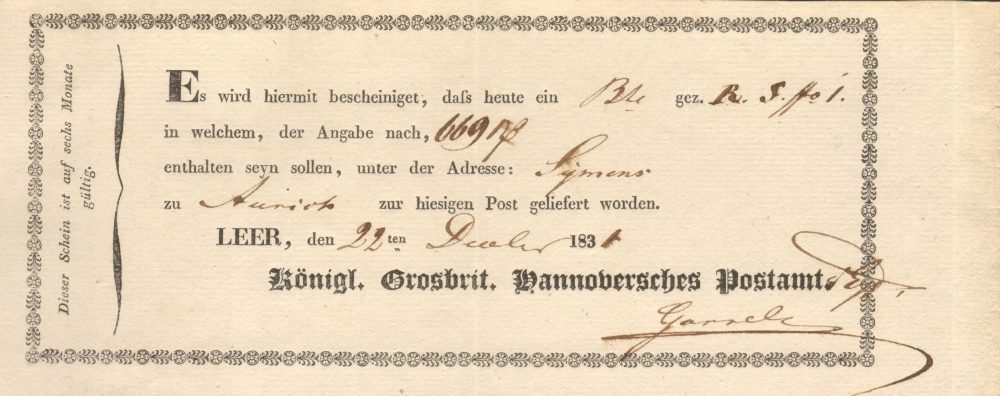 Dieser Schein ist auf sechs Monate
gültig.
Es wird hiermit bescheiniget, daſs heute ein Btl gez. R. S. No 1.
in welchem, der Angabe nach, 669 rf
enthalten seyn sollen, unter der Adresse: Sÿmens
zu Aurich zur hiesigen Post geliefert worden.
LEER, den 22ten Decbr 1831
Königl. Grosbrit. Hannoversches Postamt.
Garrels